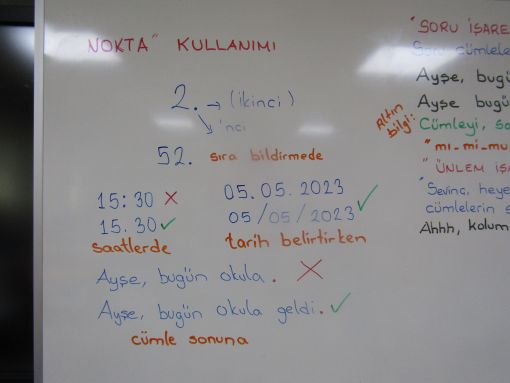 "NOKTA" KULLANIMI
2. → (ikinci)
'nci
52. sıra bildirmede
15:30 ✗
15.30 ✓
saatlerde
05.05.2023
05/05/2023 ✓
tarih belirtirken
Ayşe, bugün okula. ✗
Ayşe, bugün okula geldi. ✓
cümle sonuna
"SORU İŞARE
Soru cümlele
Ayşe, bugü
Ayşe bugü
Altın bilgi:
Cümleyi, so
"mı-mi-mu
"ÜNLEM İŞ
"Sevinç, heye
cümlelerin s
Ahhh, kolum